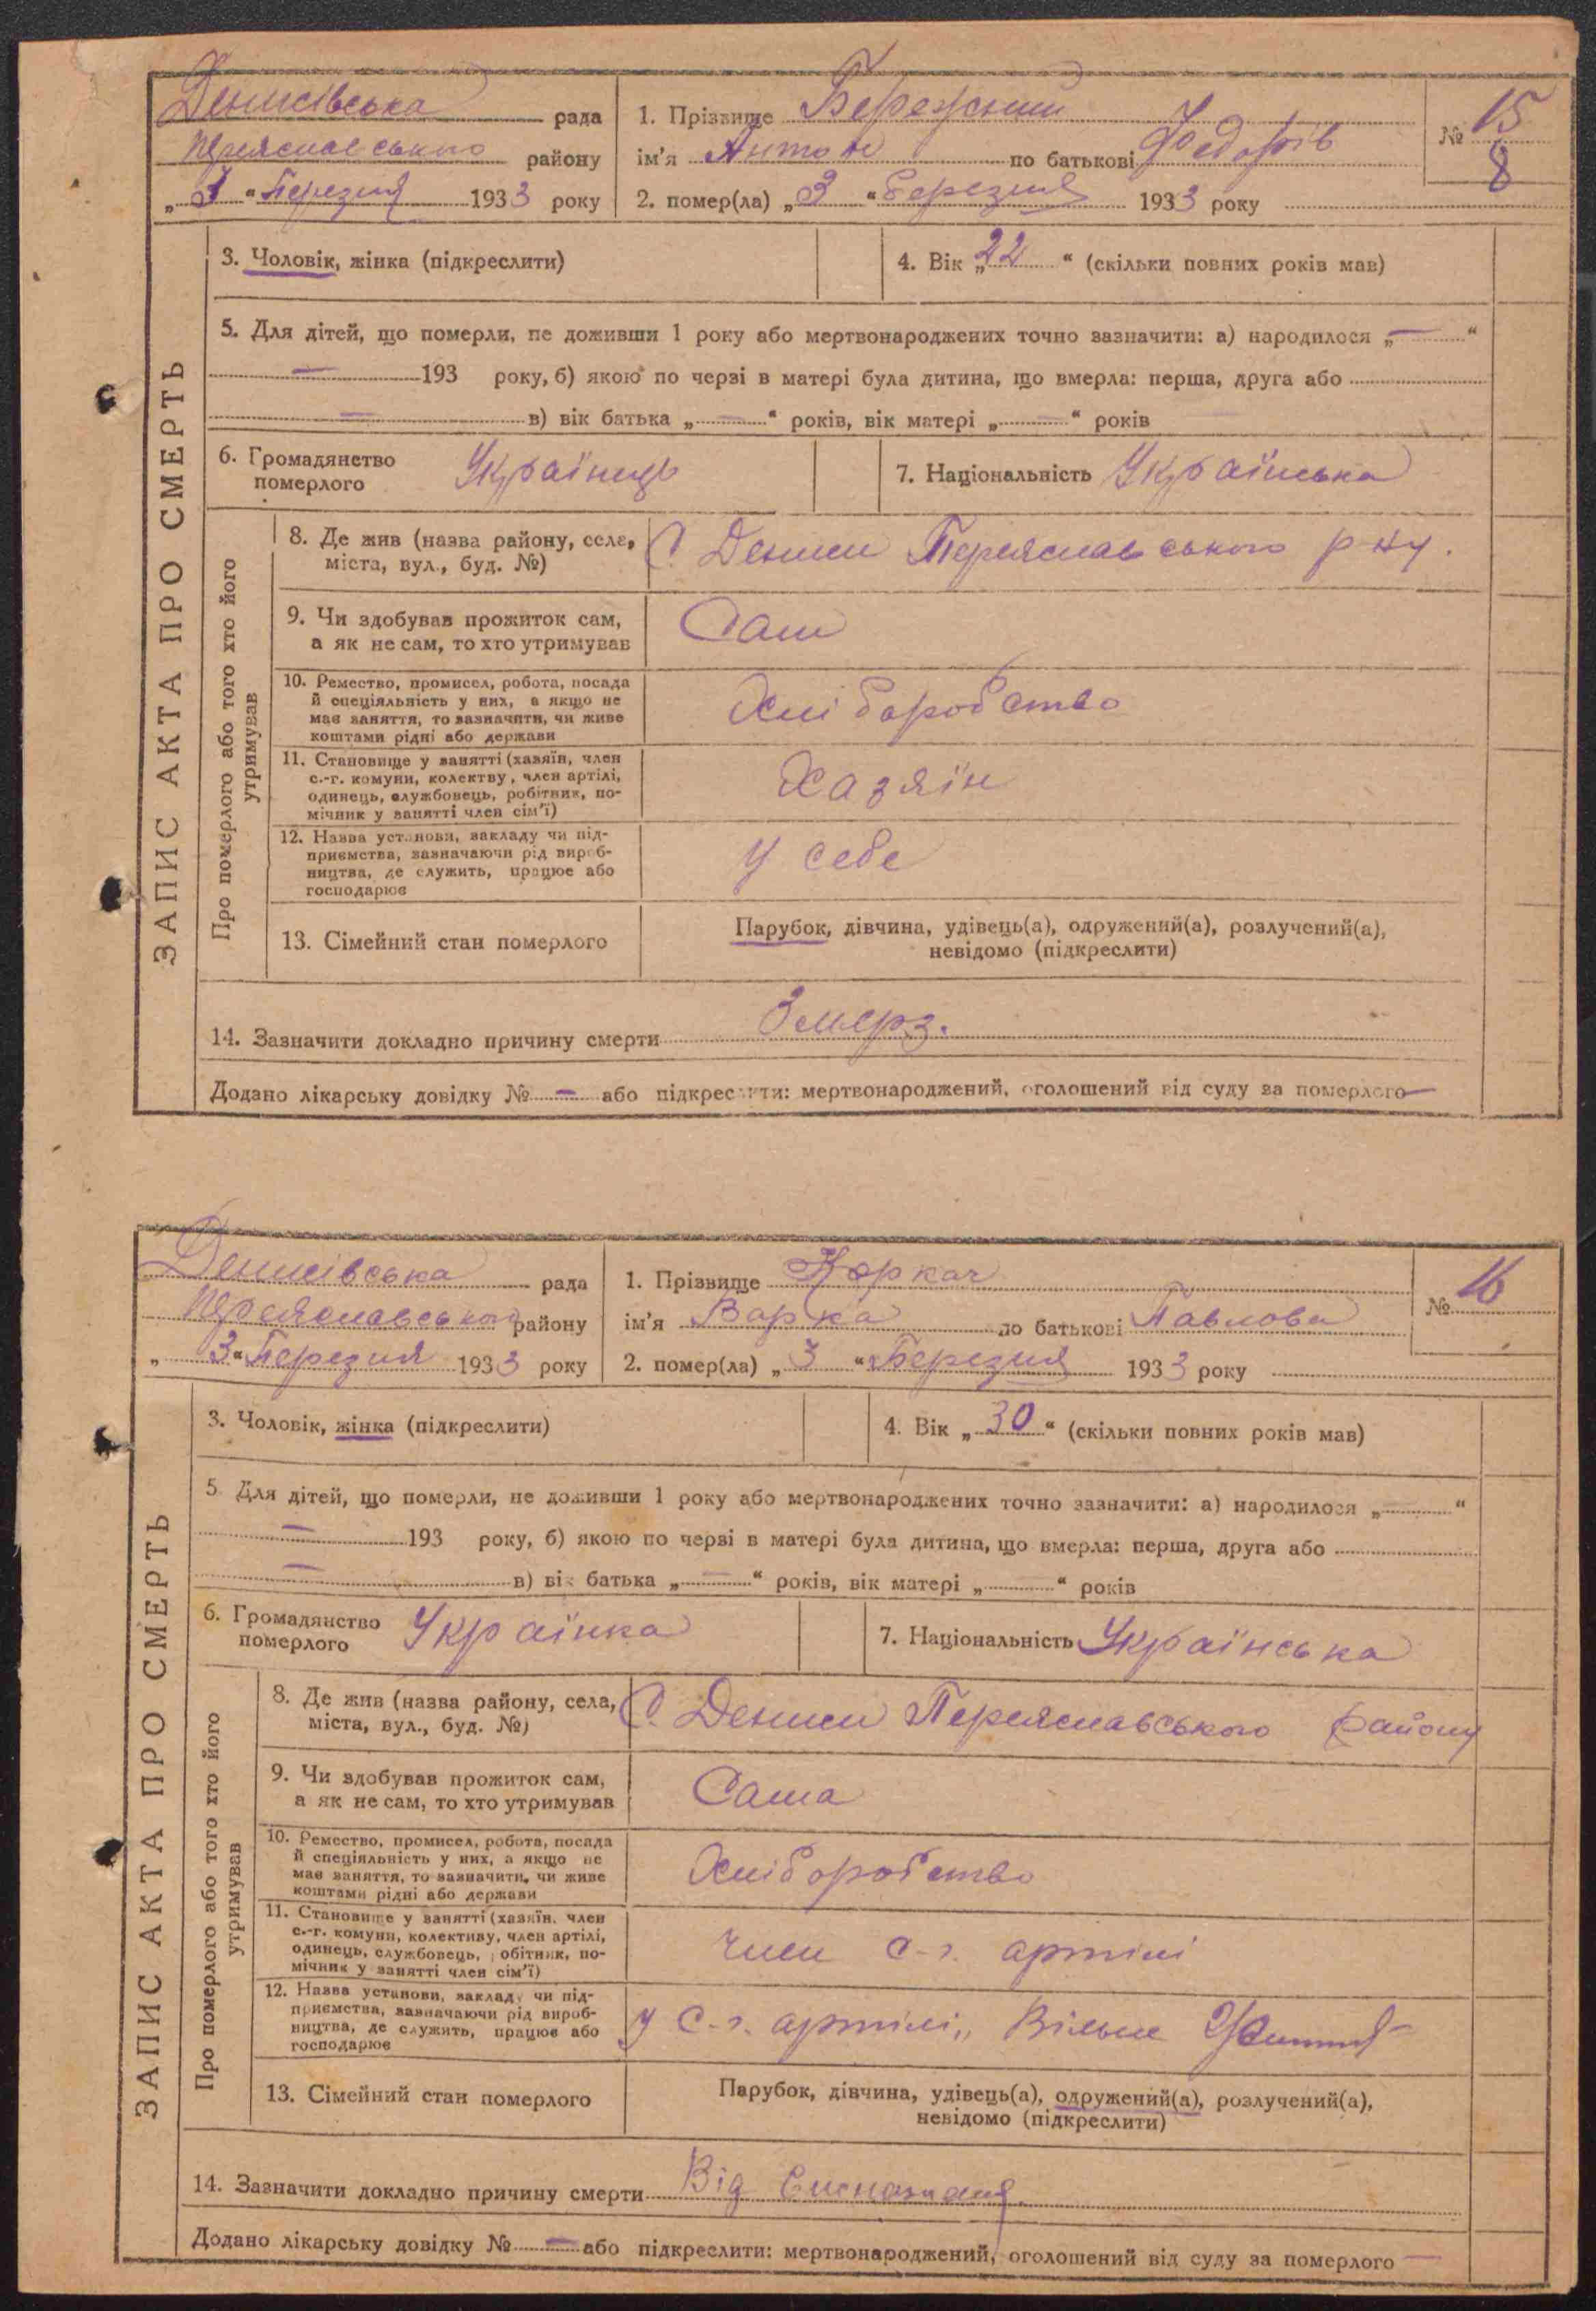 Денисівська рада
Переяславського району
„3“ Березня 1933 року
1. Прізвище Бережний
ім’я Антон по батькові Федорів
2. помер(ла) „3“ березня 1933 року
№ 15
8
3. Чоловік, жінка (підкреслити)
4. Вік „22“ (скільки повних років мав)
5. Для дітей, що померли, не доживши 1 року або мертвонароджених точно зазначити: а) народилося „—“
— 193 року, б) якою по черзі в матері була дитина, що вмерла: перша, друга або
— в) вік батька „—“ років, вік матері „—“ років
6. Громадянство
померлого Українець
7. Національність Українська
ЗАПИС АКТА ПРО СМЕРТЬ
Про померлого або того хто його
утримував
8. Де жив (назва району, села,
міста, вул., буд. №)
С. Дениси Переяславського р-ну.
9. Чи здобував прожиток сам,
а як не сам, то хто утримував
Сам
10. Ремество, промисел, робота, посада
й спеціяльність у них, а якщо не
має заняття, то зазначити, чи живе
коштами рідні або держави
Хліборобство
11. Становище у занятті (хазяїн, член
с.-г. комуни, колективу, член артілі,
одинець, службовець, робітник, по-
мічник у занятті член сім’ї)
Хазяїн
12. Назва установи, закладу чи під-
приємства, зазначаючи рід вироб-
ництва, де служить, працює або
господарює
У себе
13. Сімейний стан померлого
Парубок, дівчина, удівець(а), одружений(а), розлучений(а),
невідомо (підкреслити)
14. Зазначити докладно причину смерти Змерз.
Додано лікарську довідку № — або підкреслити: мертвонароджений, оголошений від суду за померлого —
Денисівська рада
Переяславського району
„3“ Березня 1933 року
1. Прізвище Коркач
ім’я Варка по батькові Павлова
2. помер(ла) „3“ Березня 1933 року
№ 16
3. Чоловік, жінка (підкреслити)
4. Вік „30“ (скільки повних років мав)
5. Для дітей, що померли, не доживши 1 року або мертвонароджених точно зазначити: а) народилося „—“
— 193 року, б) якою по черзі в матері була дитина, що вмерла: перша, друга або
— в) вік батька „—“ років, вік матері „—“ років
6. Громадянство
померлого Українка
7. Національність Українська
ЗАПИС АКТА ПРО СМЕРТЬ
Про померлого або того хто його
утримував
8. Де жив (назва району, села,
міста, вул., буд. №)
С. Дениси Переяславського району
9. Чи здобував прожиток сам,
а як не сам, то хто утримував
Сама
10. Ремество, промисел, робота, посада
й спеціяльність у них, а якщо не
має заняття, то зазначити, чи живе
коштами рідні або держави
Хліборобство
11. Становище у занятті (хазяїн, член
с.-г. комуни, колективу, член артілі,
одинець, службовець, робітник, по-
мічник у занятті член сім’ї)
член с-г. артілі
12. Назва установи, закладу чи під-
приємства, зазначаючи рід вироб-
ництва, де служить, працює або
господарює
у с-г. артілі „Вільне Життя
13. Сімейний стан померлого
Парубок, дівчина, удівець(а), одружений(а), розлучений(а),
невідомо (підкреслити)
14. Зазначити докладно причину смерти Від виснаження
Додано лікарську довідку № — або підкреслити: мертвонароджений, оголошений від суду за померлого —